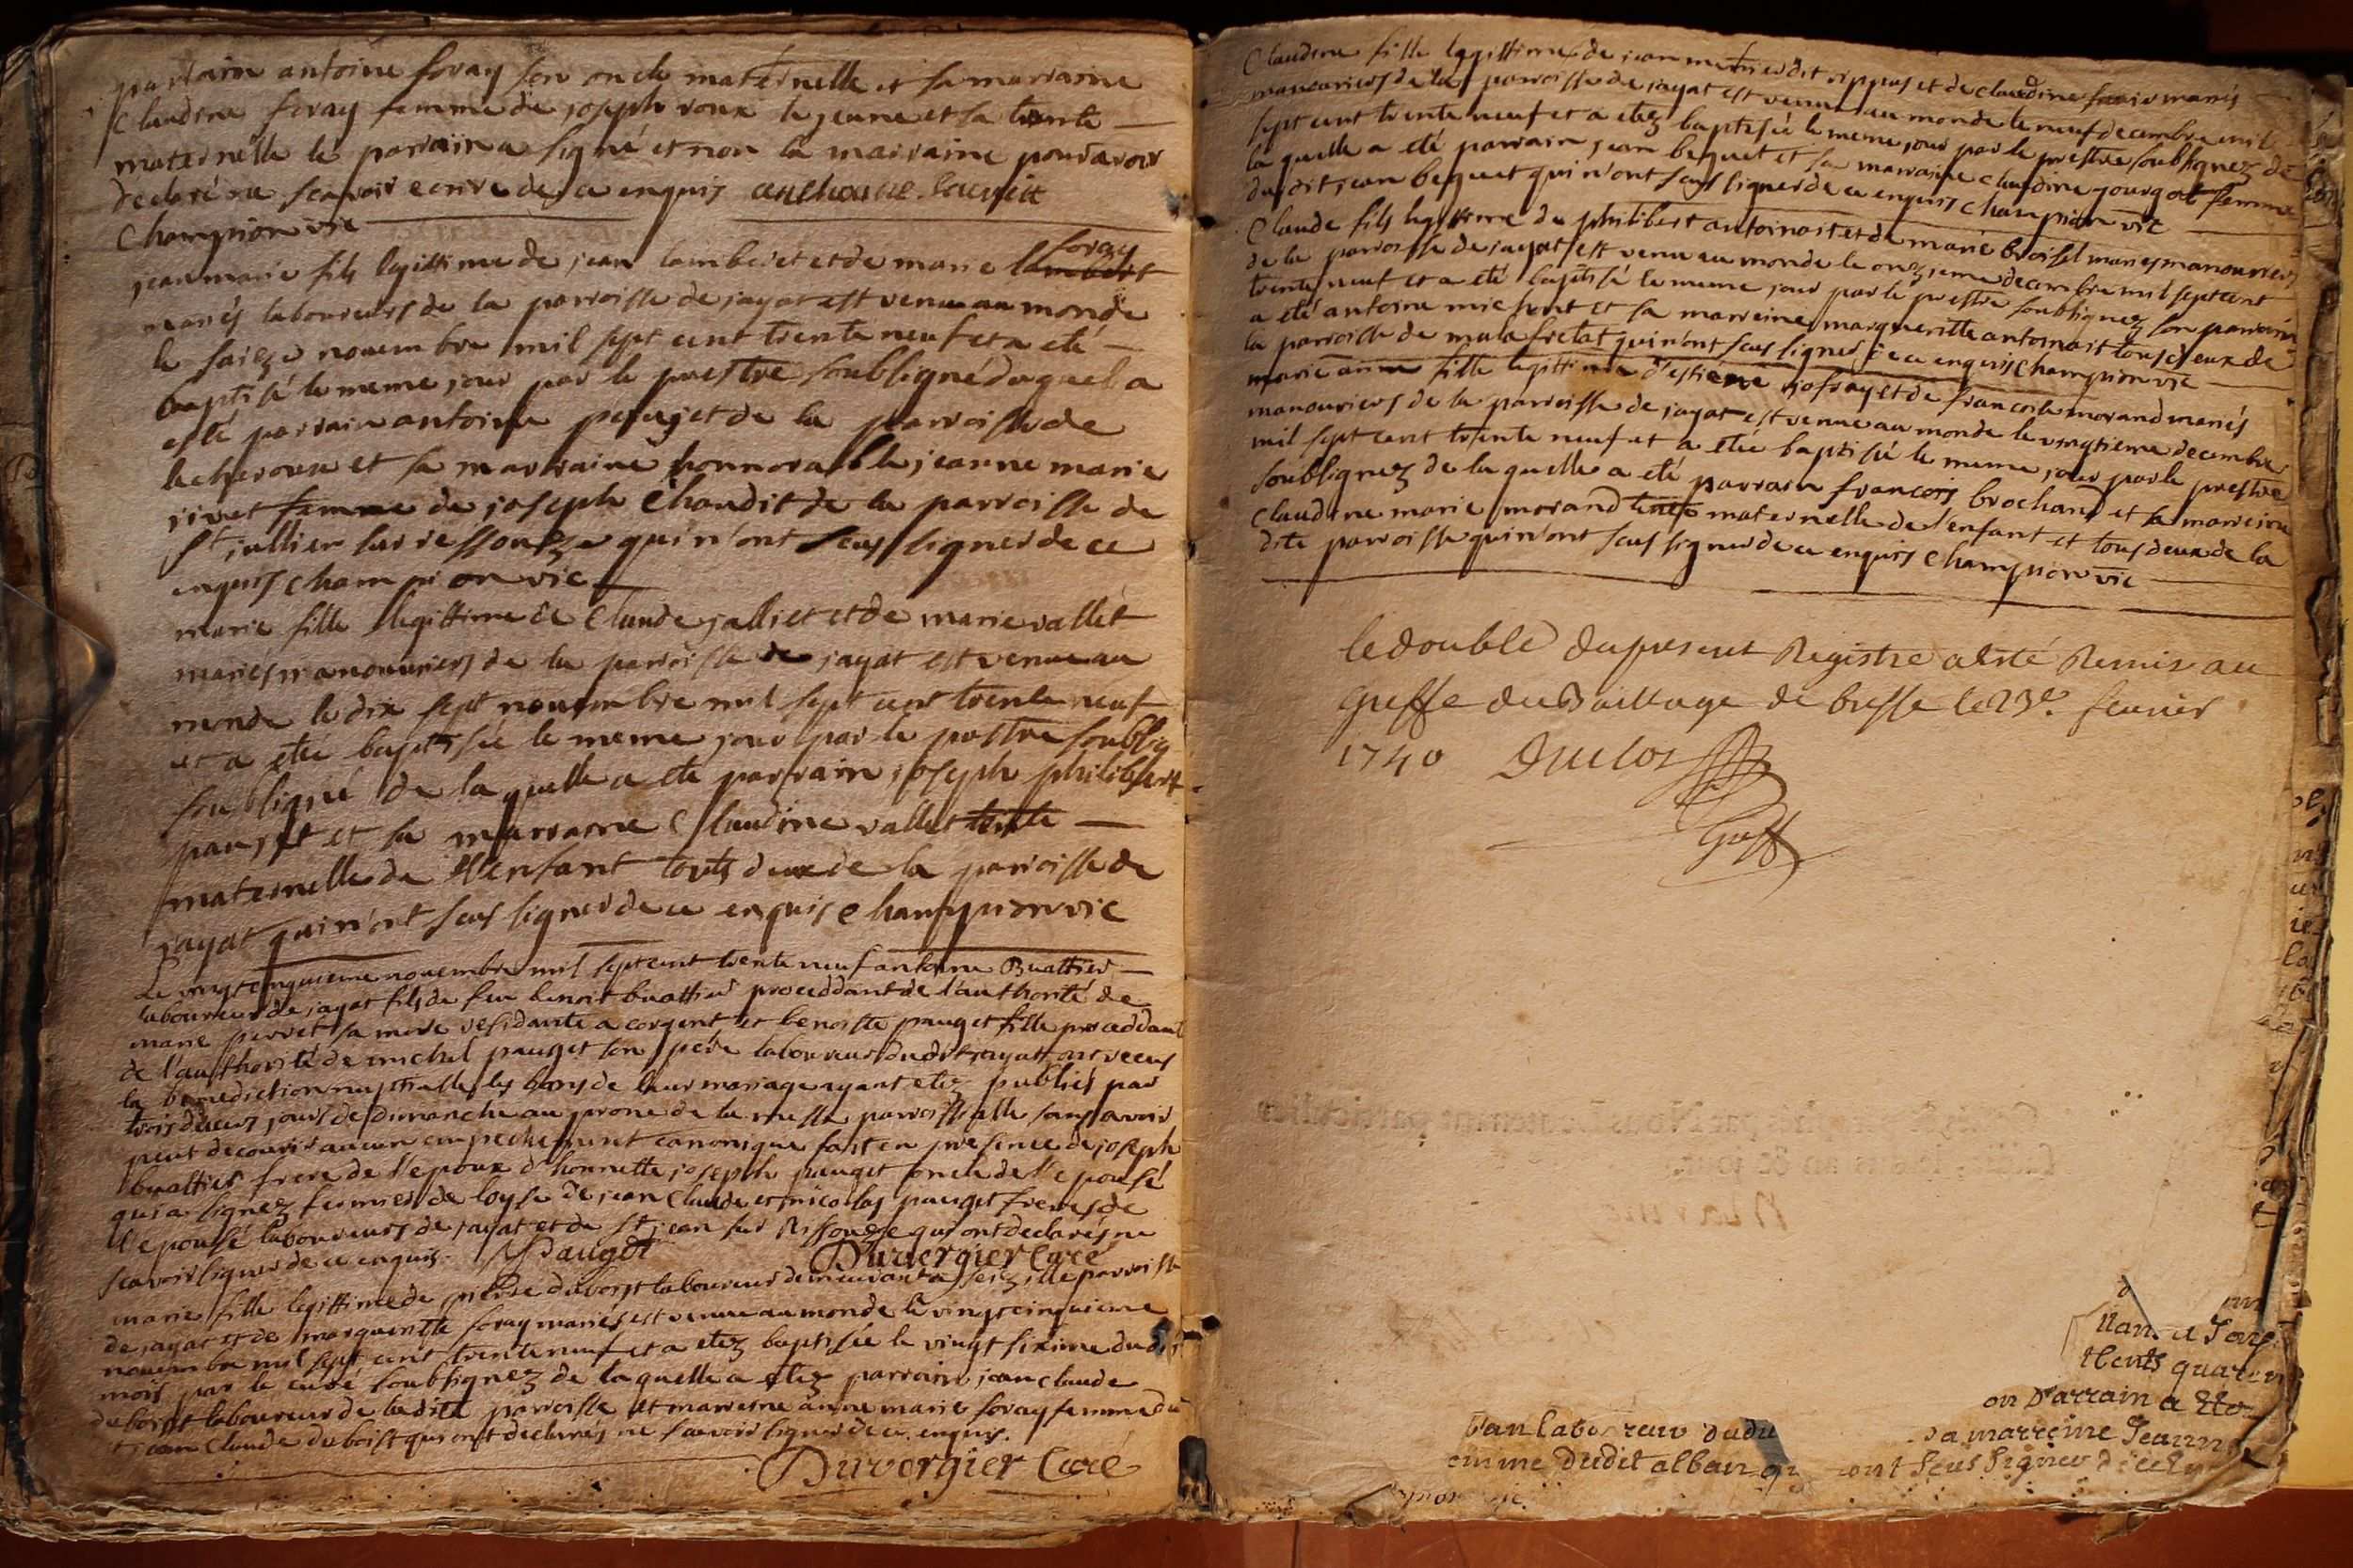 parrain antoine foray son oncle maternelle et sa marraine
Claudine foray femme de joseph roux le jeune et sa tente
maternelle le parrain a signé et non la marraine pour avoir
declaré ne scavoir ecrire de ce enquis
Champion vic
foray
jean marie fils legittime de jean lambert et de marie lambert
mariés laboureurs de la parroisse de jayat est venu au monde
le saize novembre mil sept cent trente neuf et a eté
baptisé le meme jour par le prestre soubsigné duquel a
esté parrain antoine pauget de la parroisse de
lecheroux et sa marraine honnorable jeanne marie
rivet femme de joseph Chaudit de la parroisse de
st jullien sur ressouze qui n'ont sceus signer de ce
enquis Champion vic
marie fille legittime de Claude jalliet et de marie vallet
mariés manouvriers de la parroisse de jayat est venue au
monde le dix sept novembre mil sept cent trente neuf
et a etée baptisée le meme jour par le prestre soubsig
soubsigné de laquelle a eté parrain joseph philibert
pauget et sa marraine Claudine vallet tente
maternelle de l'enfant touts deux de la parroisse de
jayat qui n'ont sceus signer de ce enquis Champion vic
Le vingt cinquieme novembre mil sept cent trente neuf antoine Buattier
laboureur de jayat fils de feu benoit buattier proceddant de l'authorité de
marie perret sa mere residante a corgent et benoiste pauget fille proceddant
de l'authorité de michel pauget son pere laboureur dudit jayat ont receus
la benediction nuptialle les bans de leur mariage ayant etez publiés par
trois divers jours de dimanche au prone de la messe parroissialle sans avoir
peut decouvrir aucun empechement canonique fait en presence de joseph
buattier frere de l'epoux d'honnette joseph pauget oncle de l'epousé
qui a signez fermier de loyse de jean Claude et nicolas pauget freres de
l'epousé laboureurs de jayat et de st jean sur Rissouze qui ont declarés ne
scavoir signer de ce enquis. Pauget Duvergier Curé
marie fille legittime de duboist laboureur demeurant a parroisse
de jayat et de marguerite foray mariés est venue au monde le vingt cinquieme
novembre mil sept cent trente neuf et a etez baptisée le vingt sixieme dudit
mois par le curé soubsignez de laquelle a etez parrain jean claude
duboist laboureur de ladite parroisse et marreine anne marie foray femme du
jean Claude duboist qui ont declarés ne scavoir signer de ce enquis.
Duvergier Curé
Claudine fille legittime de jean metrier dit et de claudine mariés
manouvriers de la parroisse de jayat est venue au monde le neuf decembre mil
sept cent trente neuf et a etez baptisée le meme jour par le prestre soubsignez de
la quelle a eté parrain jean bequet et sa marraine claudine gourgat femme
dudit jean bequet qui n'ont sceus signer de ce enquis Champion vic
Claude fils legittime de philibert antoinait et de marie broisel mariés manouvriers
de la parroisse de jayat est venu au monde le onzieme decembre mil sept cent
trente neuf et a eté baptisé le meme jour par le prestre soubsignez son parrain
a eté antoine michont et sa marreine marguerite antoinait tous deux de
la parroisse de malafretat qui n'ont sceus signer de ce enquis Champion vic
marie anne fille legittime d'estiene joffray et de francoise morand mariés
manouvriers de la parroisse de jayat est venue au monde le vingtieme decembre
mil sept cent trente neuf et a etée baptisée le meme jour par le prestre
soubsignez de la quelle a eté parrain francois brochand et sa marreine
claudine marie morand tente maternelle de l'enfant et tous deux de la
dite parroisse qui n'ont sceus signer de ce enquis Champion vic
le double du present Registre a esté Remis au
greffe du Baillage de bresse le 23e. fevrier
1740 Duclos
Greff
quaran
on Parrain a
sa marreine Jeann
emme dudit alban ont sceus signer